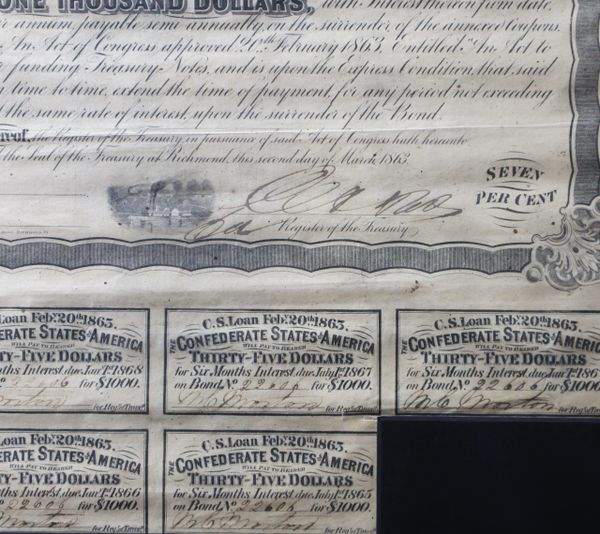 ONE THOUSAND DOLLARS, with Interest thereon from date,
annum, payable semi annually, on the surrender of the annexed Coupons.
An Act of Congress approved 20th February 1863. Entitled "An Act to
funding Treasury Notes, and is upon the Express Condition, that said
time to time, extend the time of payment, for any period not exceeding
the same rate of interest, upon the surrender of the Bond.
the Register of the Treasury, in pursuance of said Act of Congress hath hereunto
the Seal of the Treasury at Richmond, this second day of March 1863.
SEVEN
PER CENT
Register of the Treasury
C.S. Loan Feby. 20th 1863.
CONFEDERATE STATES OF AMERICA
WILL PAY TO BEARER
THIRTY-FIVE DOLLARS
Months Interest, due Jany. 1st 1868
22606 for $1000.
for Regr. of Treasy.
C.S. Loan Feby. 20th 1863.
THE CONFEDERATE STATES OF AMERICA
WILL PAY TO BEARER
THIRTY-FIVE DOLLARS
for Six Months Interest, due July 1st 1867
on Bond No. 22606 for $1000.
for Regr. of Treasy.
C.S. Loan Feby. 20th 1863.
THE CONFEDERATE STATES OF AMERICA
WILL PAY TO BEARER
THIRTY-FIVE DOLLARS
for Six Months Interest, due Jany. 1st
on Bond No. 22606 for $1000.
for Regr.
Loan Feby. 20th 1863.
STATES OF AMERICA
WILL PAY TO BEARER
THIRTY-FIVE DOLLARS
Months Interest, due Jany. 1st 1866
22606 for $1000.
for Regr. of Treasy.
C.S. Loan Feby. 20th 1863.
THE CONFEDERATE STATES OF AMERICA
WILL PAY TO BEARER
THIRTY-FIVE DOLLARS
for Six Months Interest, due July 1st 1865
on Bond No. 22606 for $1000.
for Regr. of Treasy.